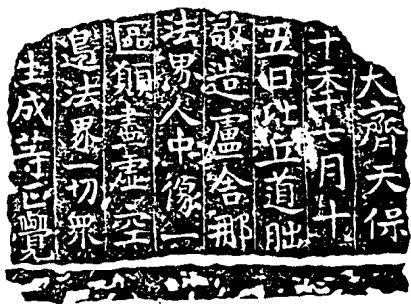 大齊天保
十年七月十
五日比丘道朏
敬造盧舍那
法界人中像一
區願盡虛空
邊法界一切衆
生成等正覺